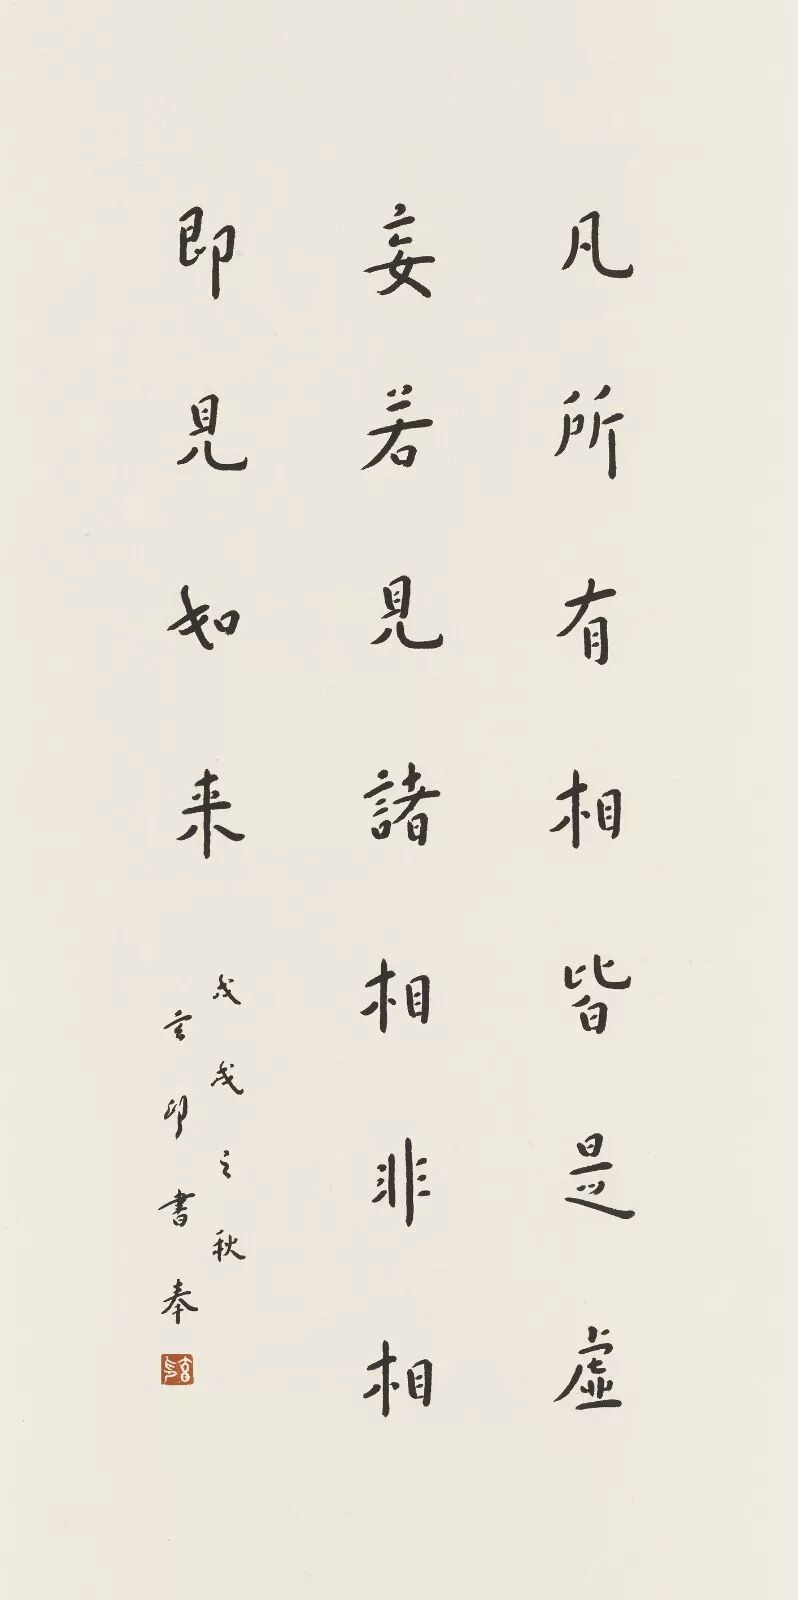 凡所有相皆是虛
妄若見諸相非相
即見如来
戊戌之秋
玄印書奉
玄印